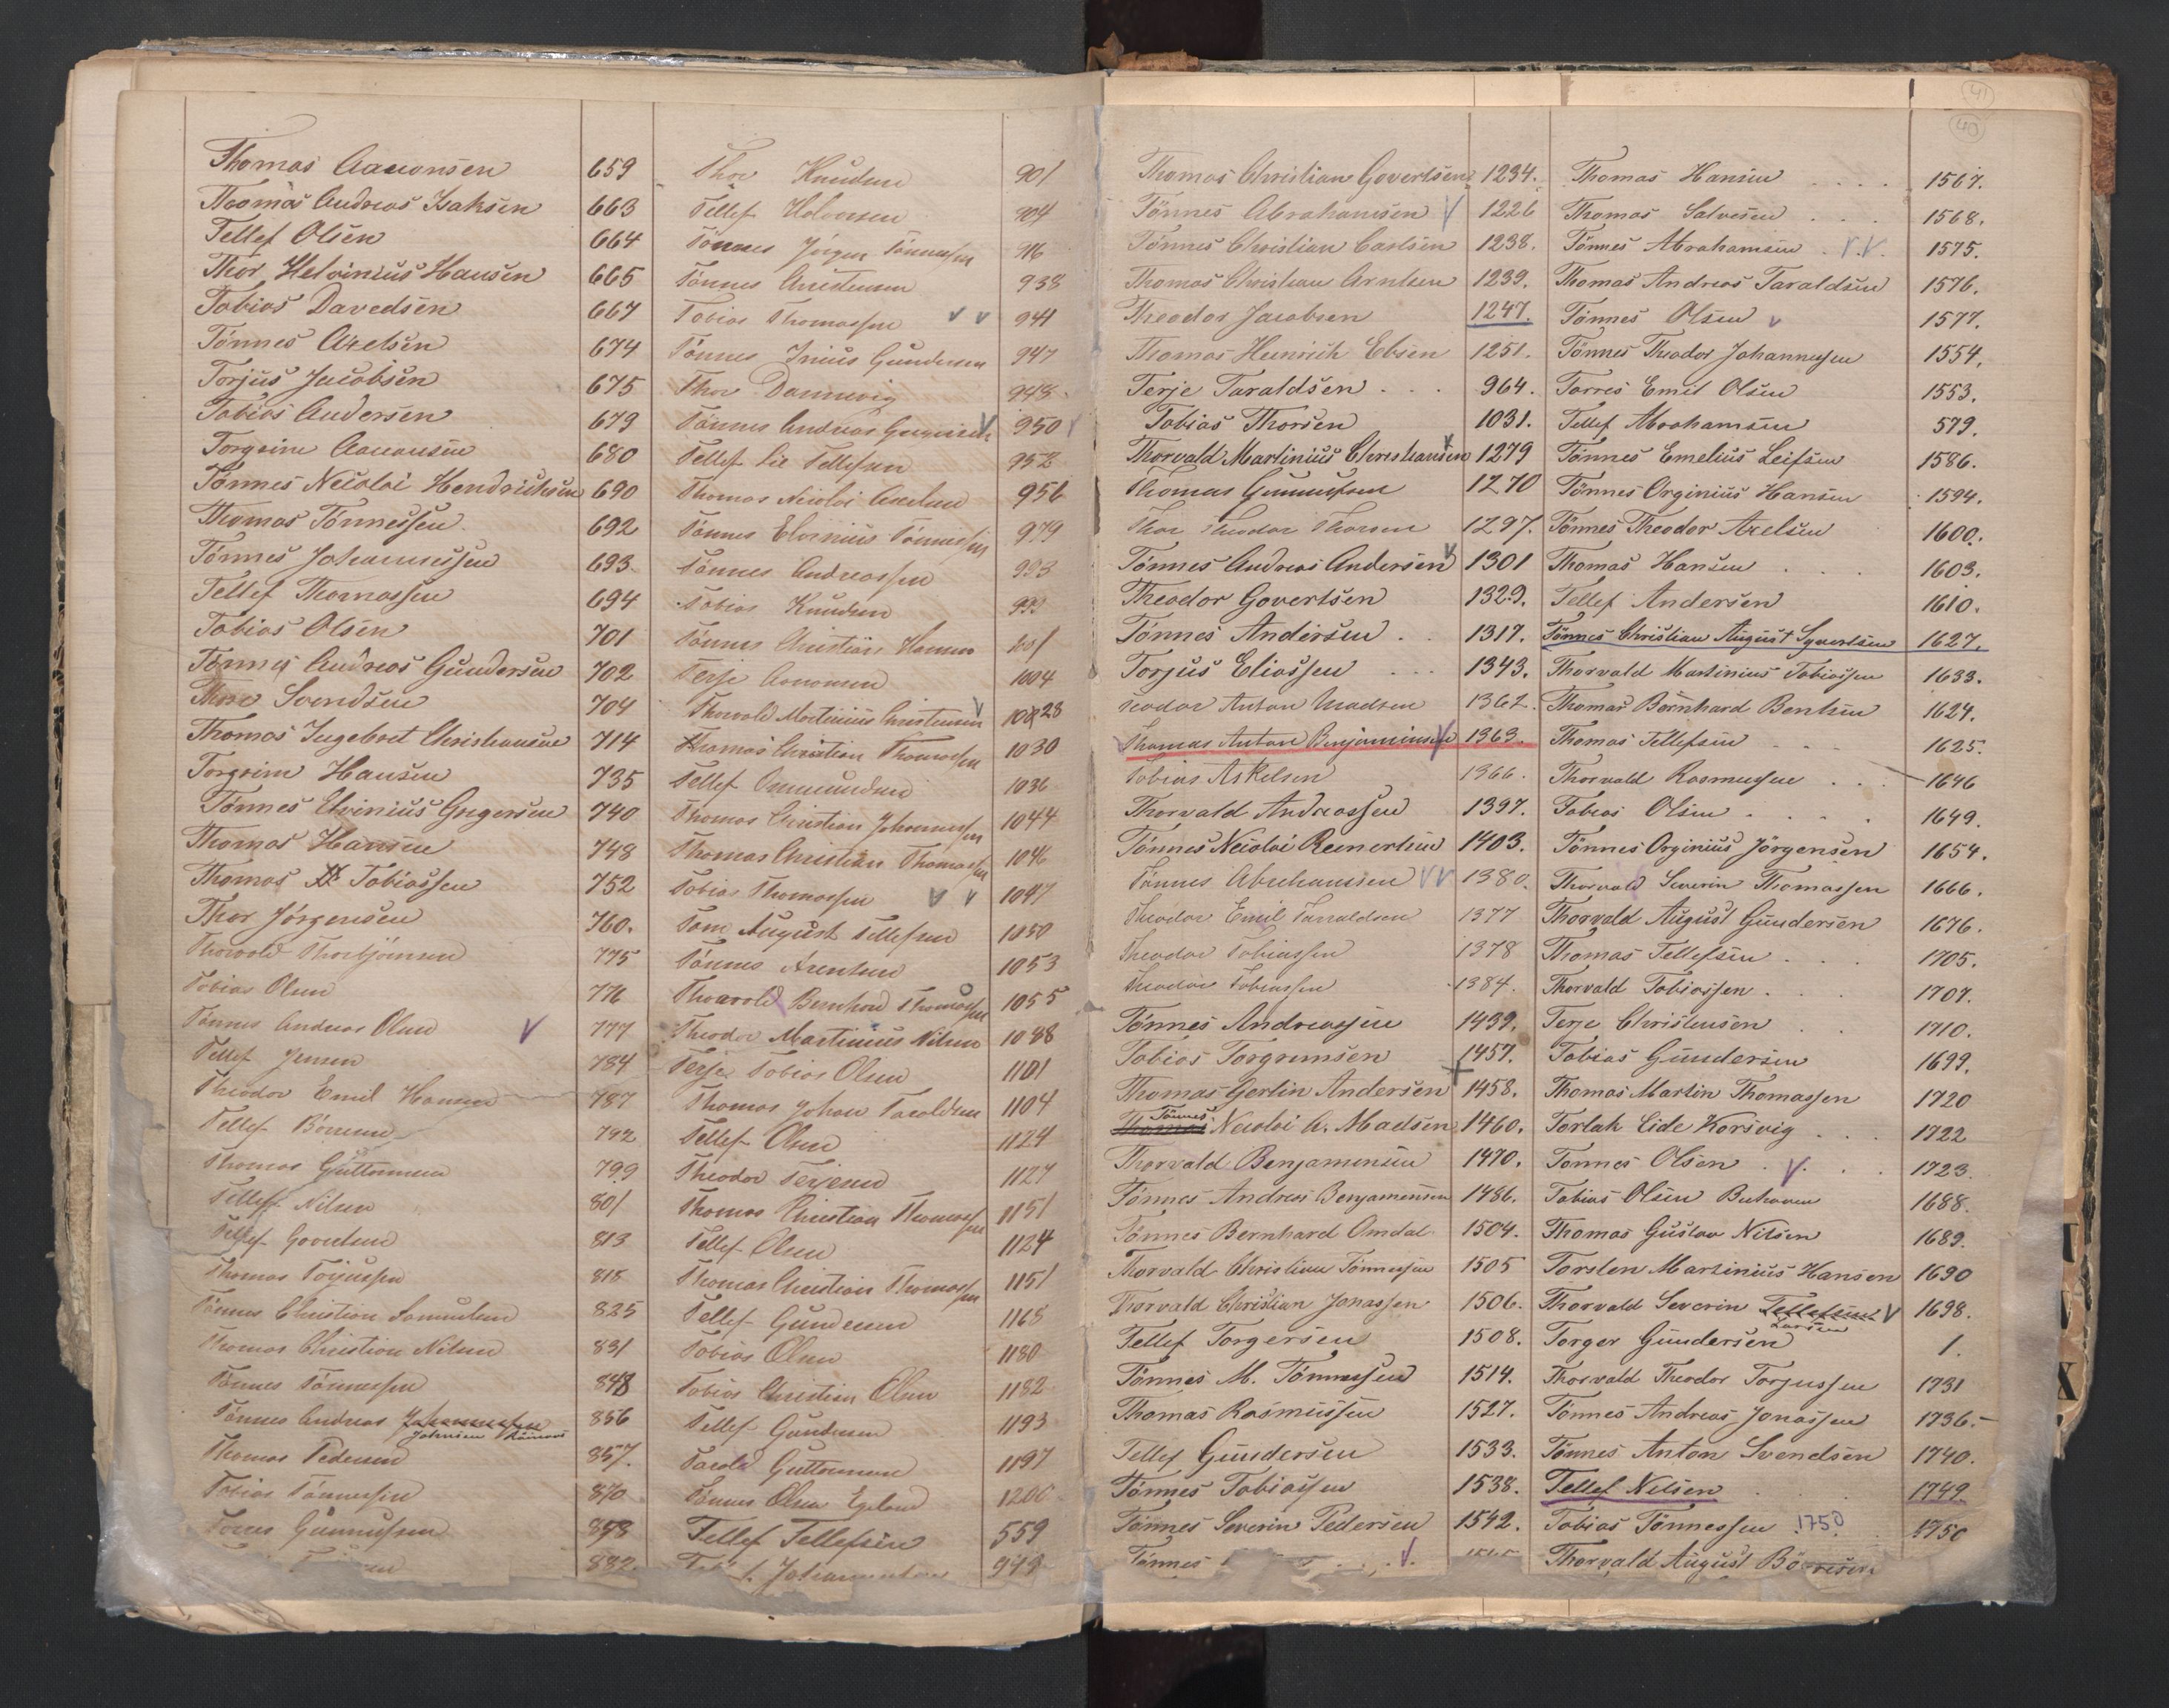 41
40
Thomas Aanonsen 659
Thomas Andreas Isaksen 663
Tellef Olsen 664
Thor Helvinius Hansen 665
Tobias Davedsen 667
Tönnes Axelsen 674
Torjus Jacobsen 675
Tobias Andersen 679
Torgrim Aanonsen 680
Tönnes Nicolai Hendriksen 690
Thomas Tönnessen 692
Tönnes Johannessen 693.
Tellef Thomassen 694
Tobias Olsen 701
Tönnes Andreas Gundersen 702
Thore Svendsen 704
Thomas Ingebret Christiansen 714
Torgrim Hansen 735
Tönnes Elvinius Gregersen 740
Thomas Hansen 748
Thomas Tobiassen 752
Thor Jörgensen 760.
Thorvald Thorbjörnsen 775
Tobias Olsen 776
Tönnes Andreas Olsen V 777
Tellef Jensen 784
Theodor Emil Hansen 787
Tellef Börresen 792
Thomas Guttormsen 799
Tellef Nilsen 801
Tellef Govertsen 813
Thomas Torjussen 818
Tönnes Christian Samuelsen 825
Thomas Christian Nilsen 831
Tönnes Tönnessen 848
Tönnes Andreas Johannessen 856
Johnsen
Thomas Pedersen 857.
Tobias Tönnessen 870
Gunnufsen 878
882.
Thor Knudsen 901
Tellef Halvorsen 904
Tönnes Jörgen Tönnessen 916
Tönnes Christensen 938
Tobias Thomassen V V 941
Tönnes Inius Gundersen 947
Thor Dannevig 948
Tönnes Andreas V 950
Tellef Lie Tellefsen 952
Thomas Nicolai Axelsen 956
Tönnes Elvinius Tönnessen 979
Tönnes Andreassen 993
Tobias Knudsen 999
Tönnes Christian Hansen 1001
Terje Aanonsen 1004
Thorvald Martinius Christensen V 1028
Thomas Christian Thomassen 1030
Tellef Ommundsen 1036
Thomas Christian Johannessen 1044
Thomas Christian Thomassen 1046
Tobias Thomassen V V 1047
Tom August Tellefsen 1050
Tönnes Arentsen 1053
Thorvald Bernhard Thomassen 1055
Theodor Martinius Nilsen 1088
Terje Tobias Olsen 1101
Thomas Johan Taraldsen 1104
Tellef Olsen 1124
Theodor Terjesen 1127
Thomas Christian Thomassen 1151
Tellef Olsen 1124
Thomas Christian Thomassen 1151
Tellef Gundersen 1168
Tobias Olsen 1180
Tobias Christian Olsen 1182
Tellef Gundersen 1193
Tarald Guttormsen 1197
Tönnes Olsen Egeland 1200
Tellef Tellefsen 559
Johannessen 949
Thomas Christian Govertsen 1234.
Tönnes Abrahamsen V 1226
Tönnes Christian Carlsen 1238.
Thomas Christian Arntsen 1239.
Theodor Jacobsen 1247.
Thomas Heinrich Ebsen 1251.
Terje Taraldsen . . 964.
Tobias Thorsen 1031.
Thorvald Martinius Christiansen V 1279
Thomas Gunnufsen 1270
Thor Theodor Thorsen 1297.
Tönnes Andreas Andersen V 1301
Theodor Govertsen 1329.
Tönnes Andersen . . 1317.
Torjus Eliassen . . . 1343.
Teodor Anton Madsen 1362.
Thomas Anton Benjaminsen V 1363.
Tobias Askelsen 1366.
Thorvald Andreassen 1397.
Tönnes Nicolai Reinertsen 1403.
Tönnes Abrahamsen VV 1380.
Theodor Emil Taraldsen 1377
Theodor Tobiassen 1378
Theodor Tobiassen 1384.
Tönnes Andreassen 1439.
Tobias Torgrimsen 1457.
Thomas Gerlin Andersen + 1458.
Thomas Tönnes Nicolai A. Madsen 1460.
Thorvald Benjaminsen 1470.
Tönnes Andreas Benjaminsen 1486.
Tönnes Bernhard Omdal 1504.
Thorvald Christian Tönnessen 1505
Thorvald Christian Jonassen 1506.
Tellef Torgersen 1508.
Tönnes M. Tönnessen 1514.
Thomas Rasmussen 1527.
Tellef Gundersen 1533.
Tönnes Tobiassen 1538.
Tönnes Severin Pedersen 1542.
Tönnes V.
Thomas Hansen . . . . 1567.
Thomas Salvesen . . . 1568.
Tönnes Abrahamsen V.V. 1575.
Thomas Andreas Taraldsen 1576.
Tönnes Olsen v 1577.
Tönnes Theodor Johannessen 1554.
Torres Emil Olsen 1553.
Tellef Abrahamsen 579.
Tönnes Emelius Leifsen 1586.
Tönnes Orginius Hansen 1594.
Tönnes Theodor Axelsen 1600.
Thomas Hansen . . . 1603.
Tellef Andersen 1610.
Tönnes Christian August Syvertsen 1627.
Thorvald Martinius Tobiassen 1633.
Thomas Bernhard Bentsen 1624.
Thomas Tellefsen 1625.
Thorvald Rasmussen . . . 1646
Tobias Olsen . . . . 1649.
Tönnes Orginius Jörgensen 1654.
Thorvald Severin Thomassen 1666.
Thorvald August Gundersen 1676.
Thomas Tellefsen . . . 1705.
Thorvald Tobiassen . . . 1707.
Terje Christensen . . 1710.
Tobias Gundersen 1699.
Thomas Martin Thomassen 1720
Torlak Eide Korsvig . . . 1722
Tönnes Olsen . V . . 1723
Tobias Olsen 1688.
Thomas Gustav Nilsen 1689.
Torsten Martinius Hansen 1690
Thorvald Severin Tellefsen V 1698.
Larsen
Torger Gundersen 1.
Thorvald Theodor Torjussen 1731
Tönnes Andreas Jonassen 1736.
Tönnes Anton Svendsen 1740.
Tellef Nilsen 1749
Tobias Tönnessen 1750 1750
Thorvald August Börresen